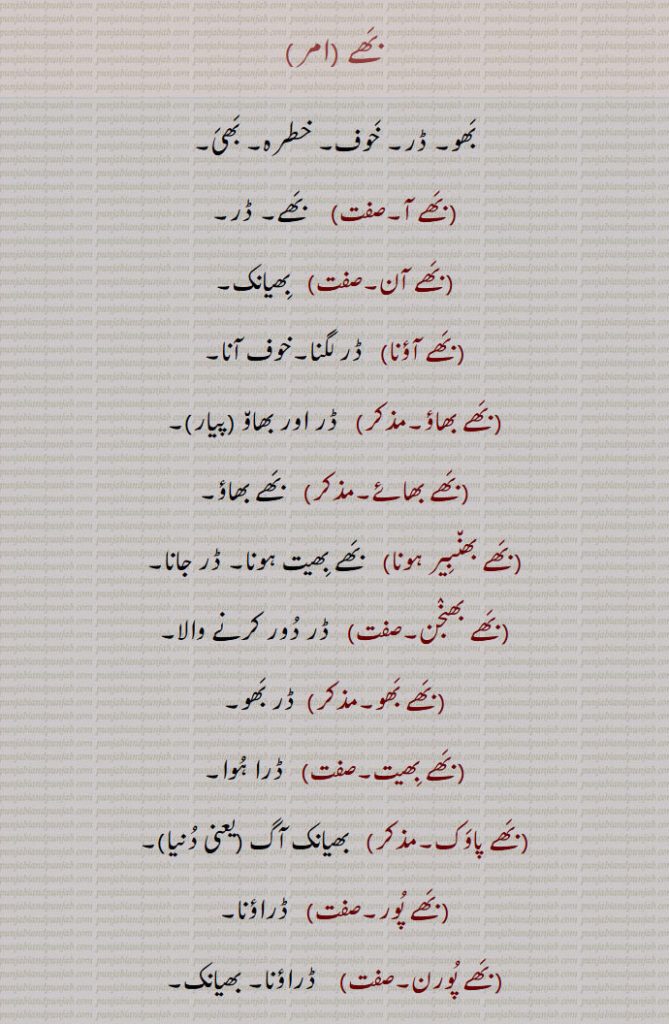 بَھے (امر)
بَھو۔ ڈر۔ خَوف۔ خطرہ۔ بَھیَ۔
(بَھے آ۔صفت) بَھے۔ ڈر۔
(بَھے آن۔صفت) بِھیانک۔
(بَھے آؤنا) ڈر لگنا۔خوف آنا۔
(بَھے بھاؤ۔مذکر) ڈر اور بھاوّ (پیار)۔
(بَھے بھائے۔مذکر) بَھے بھاؤ۔
(بَھے بھنّبِیر ہونا) بَھے بِھیت ہونا۔ ڈر جانا۔
(بَھے بھنجّن۔صفت) ڈر دُور کرنے والا۔
(بَھے بَھو۔مذکر) ڈر بَھو۔
(بَھے بِھیت۔صفت) ڈرا ہُوا۔
(بَھے پاوَک۔مذکر) بھیانک آگ (یعنی دُنیا)۔
(بَھے پُور۔صفت) ڈراؤنا۔
(بَھے پُورن۔صفت) ڈراؤنا۔ بھیانک۔